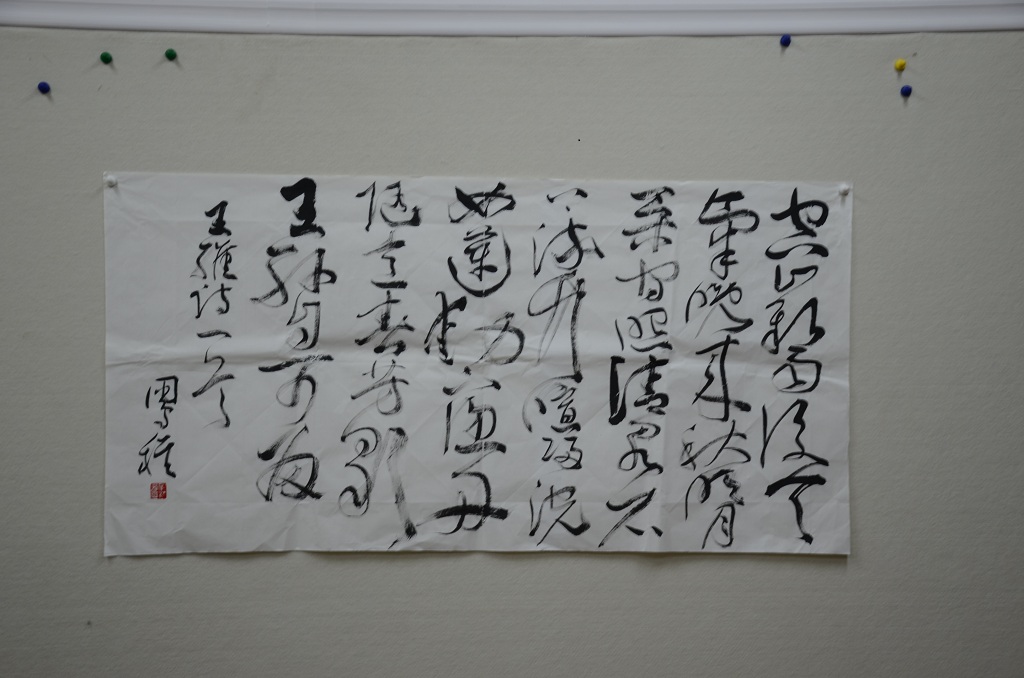 空山新雨後天
氣晚來秋明月
松間照清泉石
上流竹喧歸浣
女蓮動下漁舟
隨意春芳歇
王孫自可留
王維詩一首